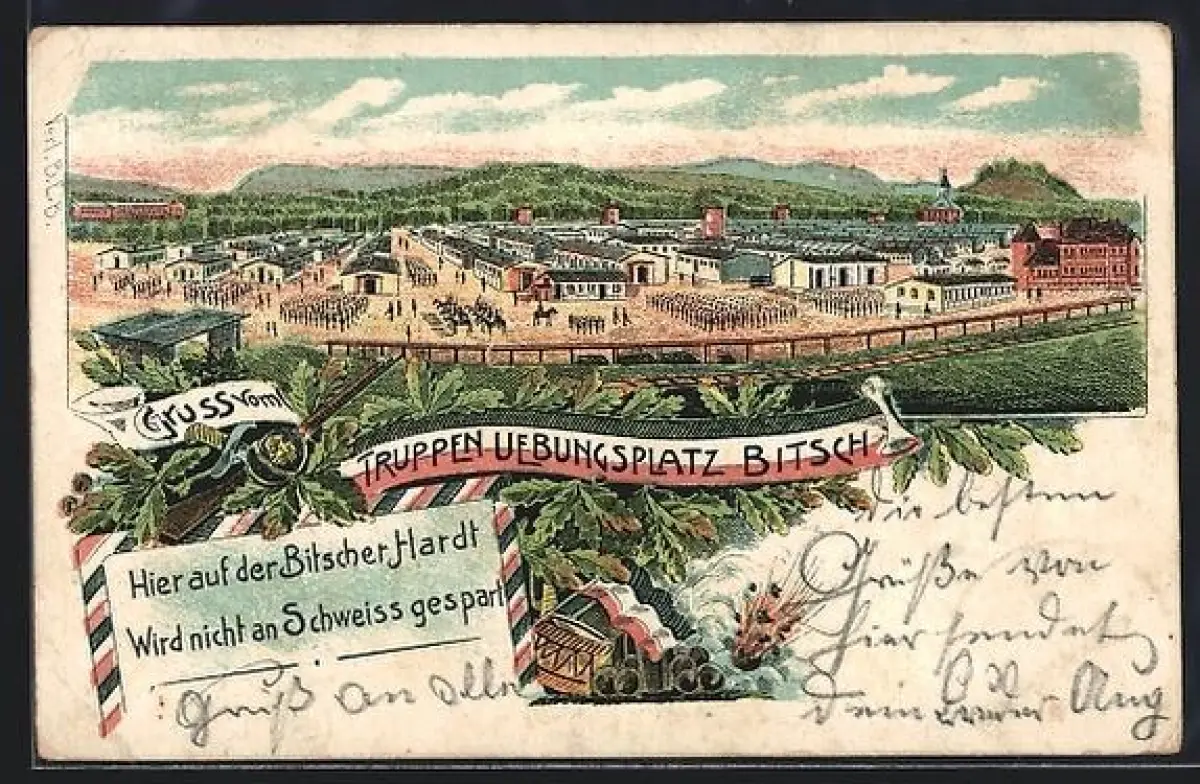 Gruss vom
Truppen Uebungsplatz Bitsch
Hier auf der Bitscher Hardt
Wird nicht an Schweiss gespart
die besten
Grüße von
hier sendet
Dein Bruder Aug
Gruß an Alle